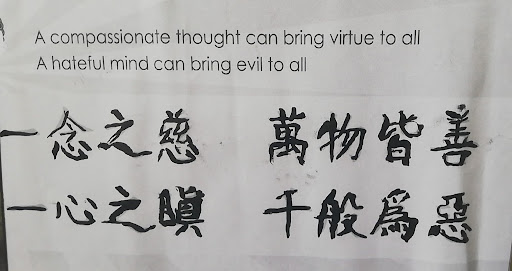 A compassionate thought can bring virtue to all
A hateful mind can bring evil to all
一念之慈 萬物皆善
一心之瞋 千般為惡